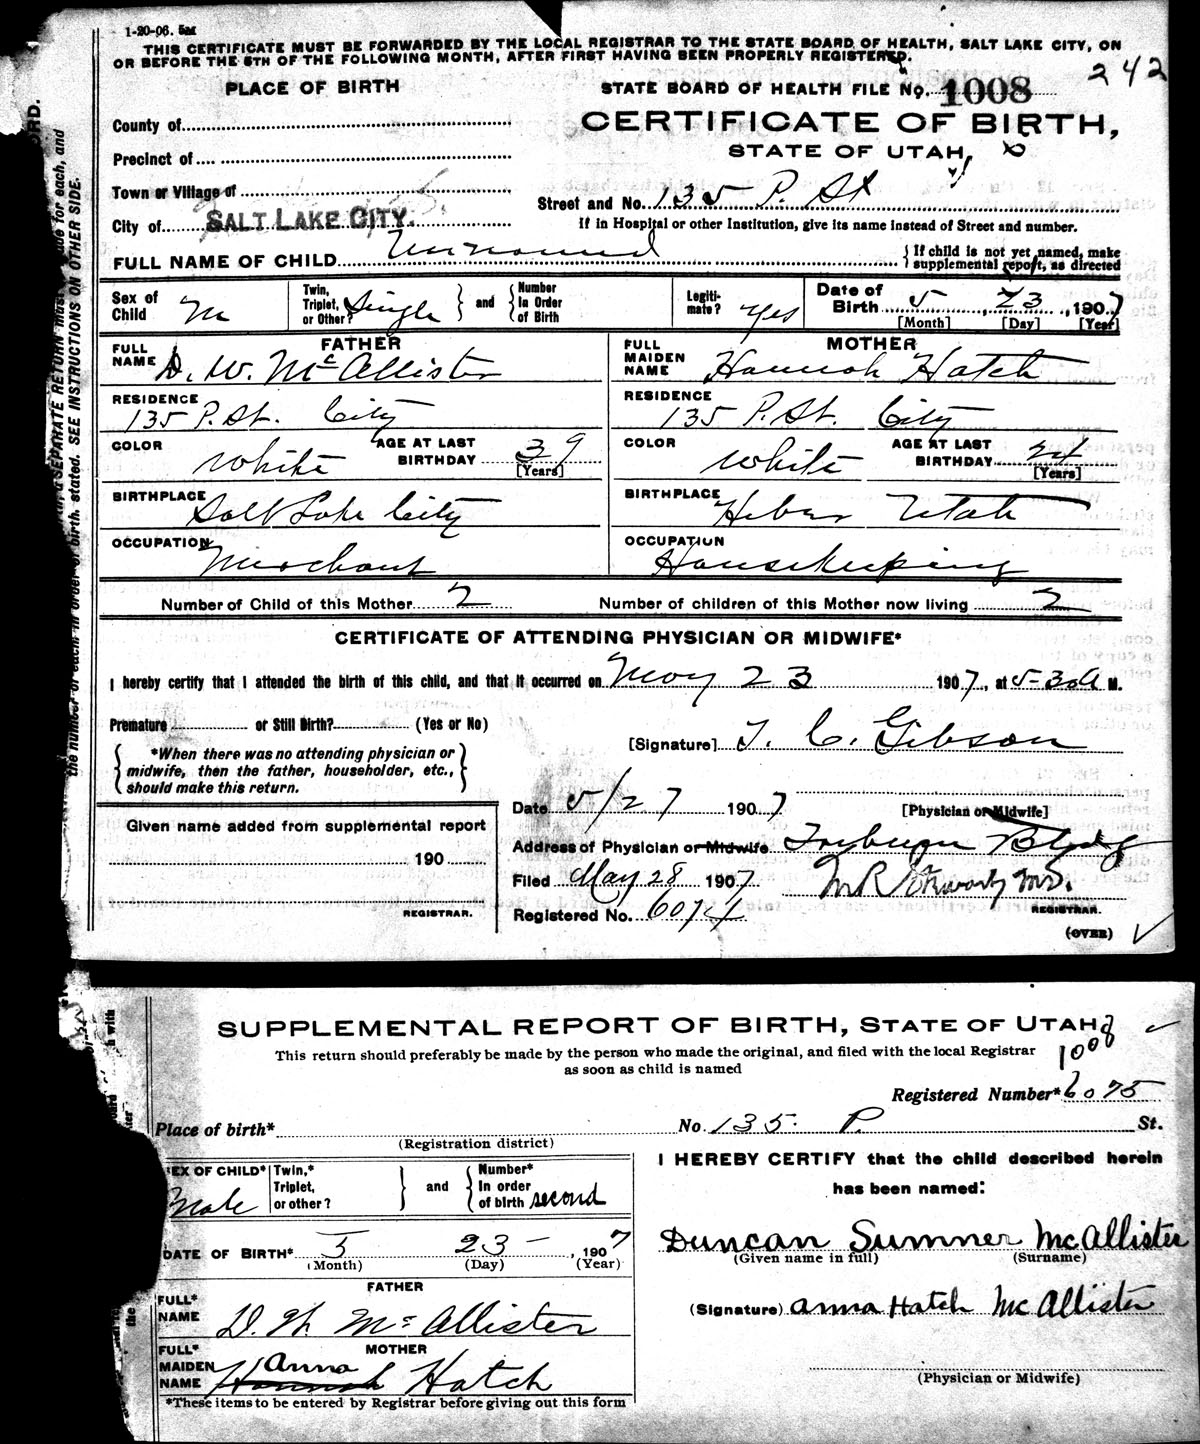 1-20-06. 5M
THIS CERTIFICATE MUST BE FORWARDED BY THE LOCAL REGISTRAR TO THE STATE BOARD OF HEALTH, SALT LAKE CITY, ON
OR BEFORE THE 5TH OF THE FOLLOWING MONTH, AFTER FIRST HAVING BEEN PROPERLY REGISTERED.
242
PLACE OF BIRTH
STATE BOARD OF HEALTH FILE No. 1008
County of
CERTIFICATE OF BIRTH,
Precinct of
STATE OF UTAH,
Town or Village of
Street and No. 135 P. St
City of SALT LAKE CITY.
If in Hospital or other Institution, give its name instead of Street and number.
FULL NAME OF CHILD Unnamed
If child is not yet named, make
supplemental report, as directed
Sex of Child M
Twin, Triplet, or Other? Single
and
Number In Order of Birth
Legitimate? Yes
Date of Birth 5 23, 1907
[Month] [Day] [Year]
FATHER
FULL NAME D. W. McAllister
MOTHER
FULL MAIDEN NAME Hannah Hatch
RESIDENCE 135 P. St. City
RESIDENCE 135 P. St. City
COLOR White
AGE AT LAST BIRTHDAY 39 [Years]
COLOR White
AGE AT LAST BIRTHDAY 24 [Years]
BIRTHPLACE Salt Lake City
BIRTHPLACE Heber Utah
OCCUPATION Merchant
OCCUPATION Housekeeping
Number of Child of this Mother 2
Number of children of this Mother now living 2
CERTIFICATE OF ATTENDING PHYSICIAN OR MIDWIFE*
I hereby certify that I attended the birth of this child, and that it occurred on May 23 1907, at 5-30 A M.
Premature or Still Birth? (Yes or No)
[Signature] T. C. Gibson
*When there was no attending physician or
midwife, then the father, householder, etc.,
should make this return.
Date 5/27 1907
[Physician or Midwife]
Given name added from supplemental report
Address of Physician or Midwife Bldg
190
Filed May 28 1907
REGISTRAR.
Registered No. 6074
REGISTRAR.
(OVER)
SEPARATE RETURN
for each, and
the number of each, in order of birth, stated. SEE INSTRUCTIONS ON OTHER SIDE.
SUPPLEMENTAL REPORT OF BIRTH, STATE OF UTAH
This return should preferably be made by the person who made the original, and filed with the local Registrar
as soon as child is named
1008
Registered Number* 6075
Place of birth*
No. 135. P. St.
(Registration district)
SEX OF CHILD* Male
Twin,* Triplet, or other?
and
Number* In order of birth second
I HEREBY CERTIFY that the child described herein
has been named:
DATE OF BIRTH* 5 23 -, 1907
(Month) (Day) (Year)
Duncan Sumner McAllister
(Given name in full) (Surname)
FATHER
FULL* NAME D. W. McAllister
(Signature) Anna Hatch McAllister
MOTHER
FULL* MAIDEN NAME Hannah Anna Hatch
(Physician or Midwife)
*These items to be entered by Registrar before giving out this form